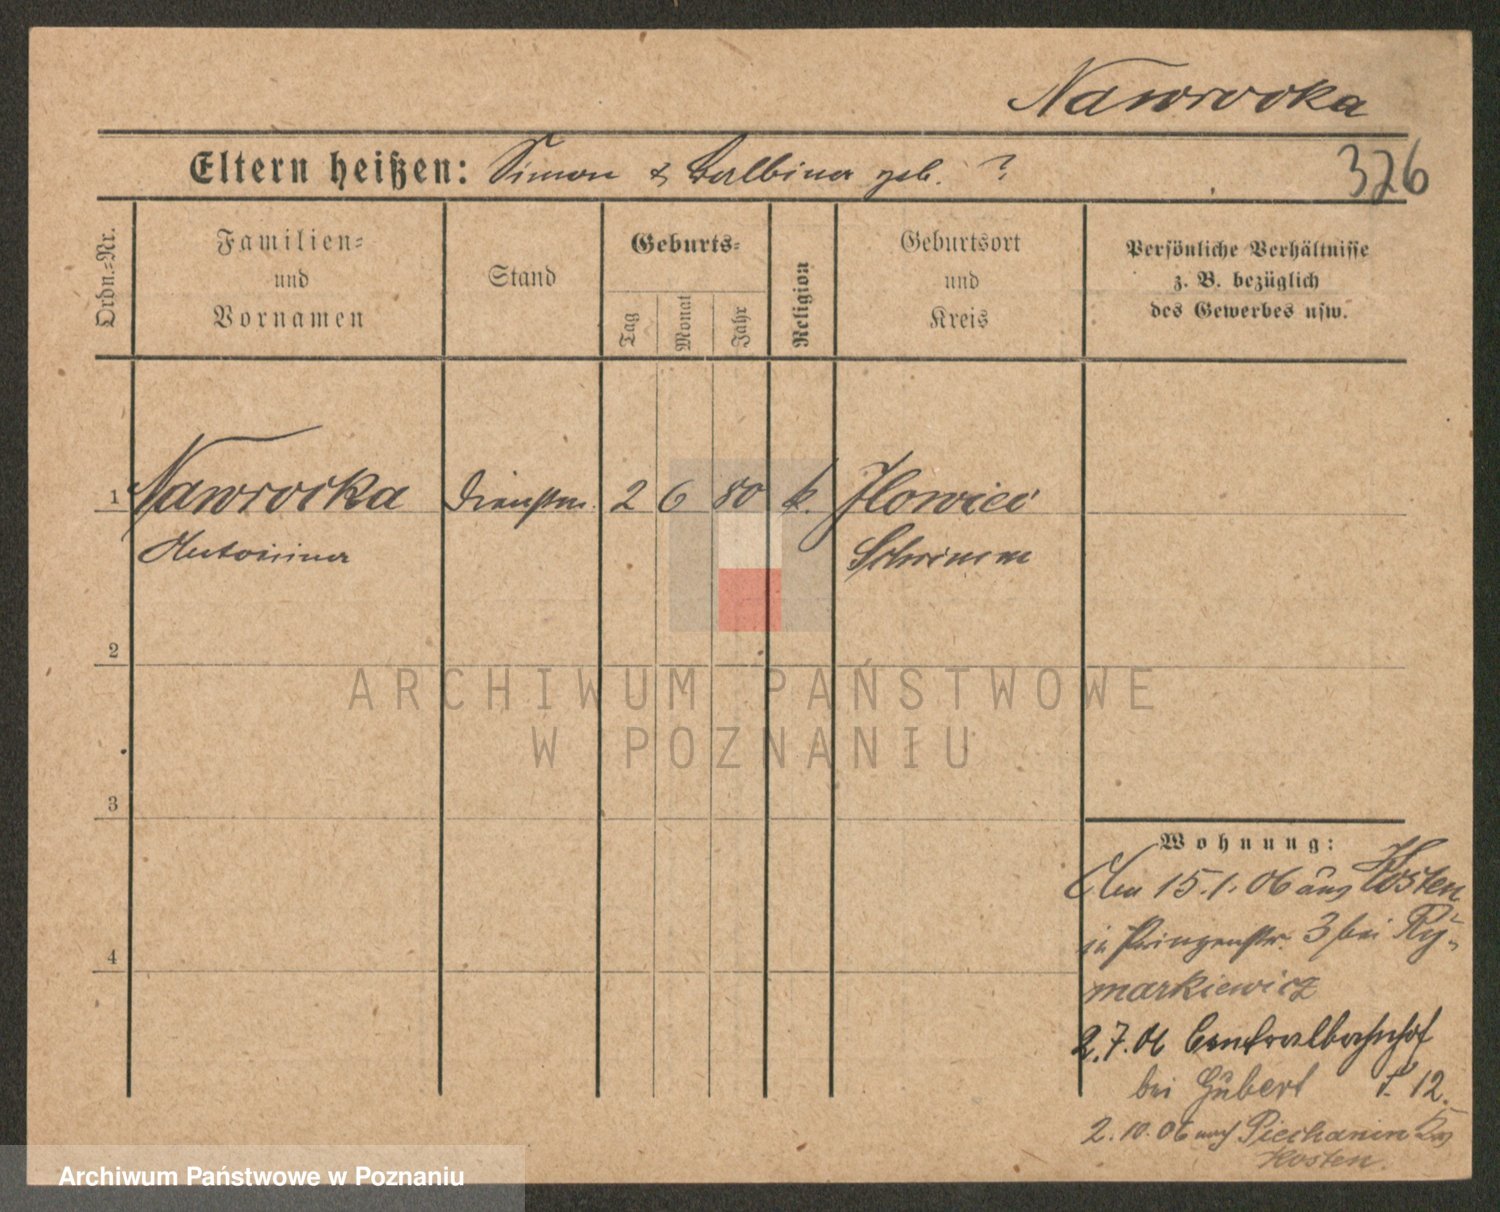 Nawrocka
Eltern heißen: Simon & Balbina geb. ?
326
Ordn.-Nr.
Familien-
und
Vornamen
Stand
Geburts-
Tag
Monat
Jahr
Religion
Geburtsort
und
Kreis
Persönliche Verhältnisse
z. B. bezüglich
des Gewerbes usw.
1 Nawrocka Dienstm. 2 6 80 k. Ilowiec
Antonina Schrimm
2
ARCHIWUM PAŃSTWOWE
W POZNANIU
3
Wohnung:
Am 15.1.06 aus Kosten
in Prinzenstr. 3 bei Ry-
markiewicz
2.7.06 Centralbahnhof
bei Hubert 12.
4
2.10.06 nach Piechanin Krs
Kosten.
Archiwum Państwowe w Poznaniu